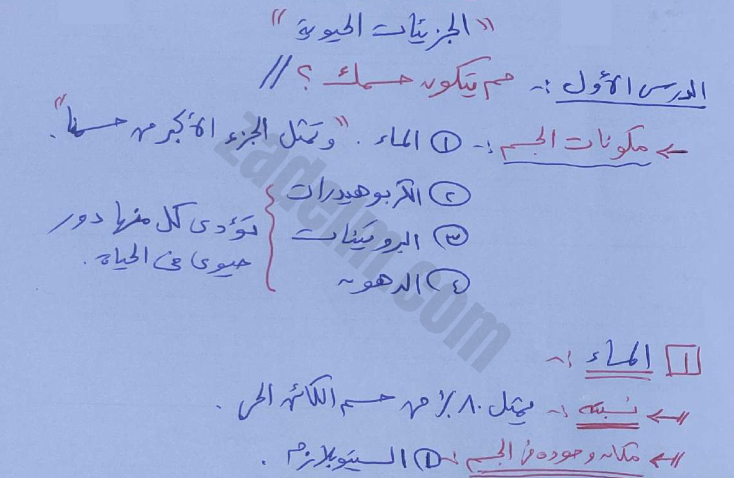 "الجزيئات الحيوية"
الدرس الأول :- مم يتكون جسمك ؟ //
← مكونات الجسم :- ① الماء . "وتمثل الجزء الأكبر من جسمنا".
② الكربوهيدرات
③ البروتينات
④ الدهون
تؤدى كل منها دور
حيوى فى الحياة .
1 الماء :-
← نسبته :- يمثل ٨٠ % من جسم الكائن الحى .
← مكان وجوده فى الجسم :- ① السيتوبلازم .
zadelm.com